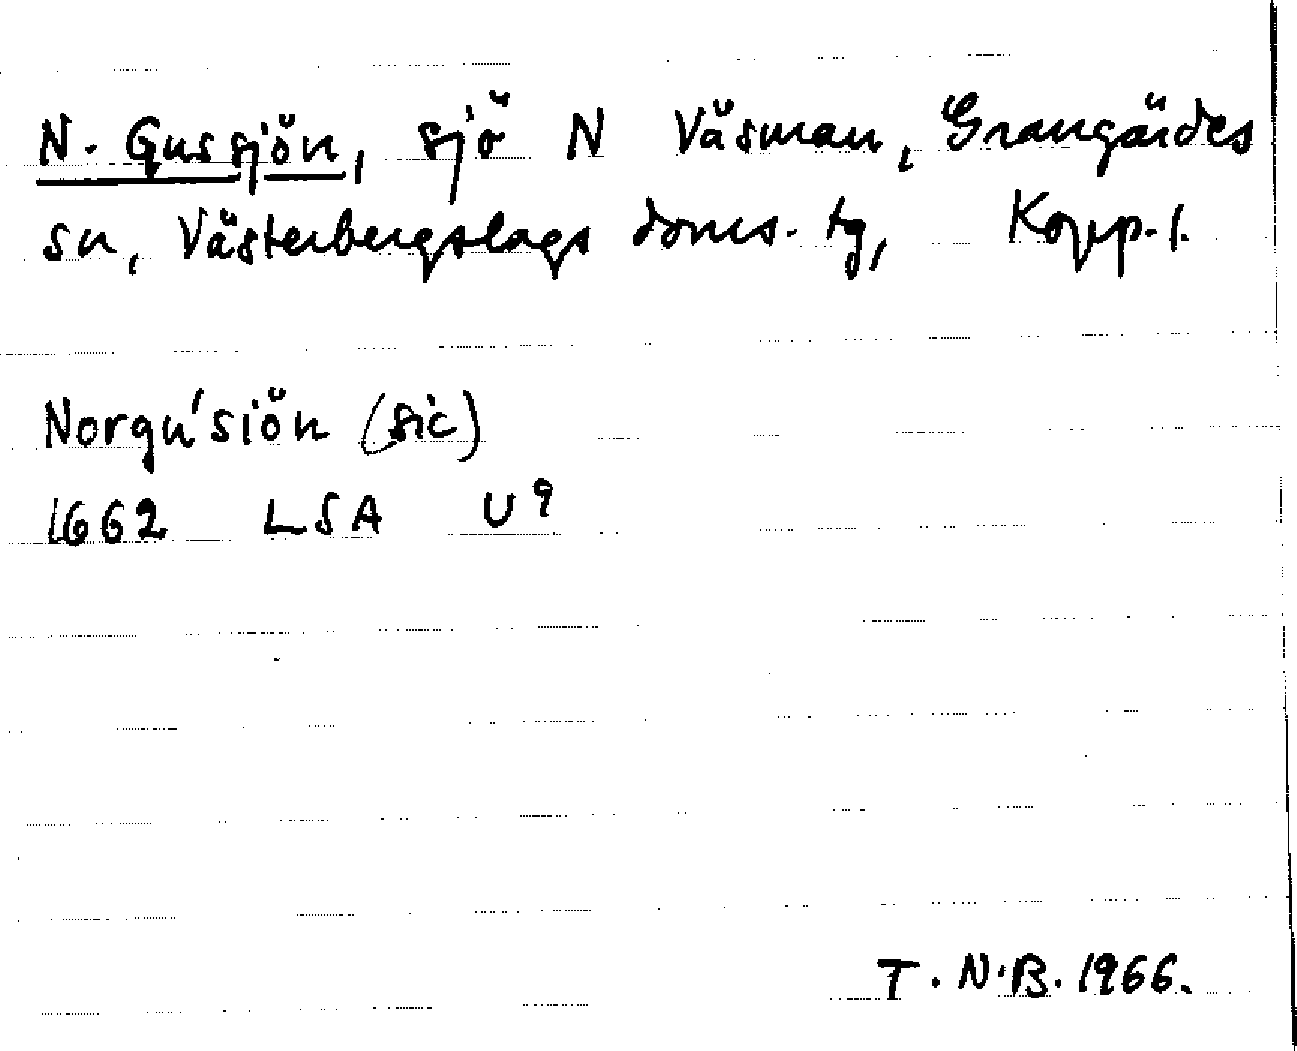 N. Gussjön, sjö N Väsman, Grangärdes
sn, Västerbergslags doms. tg, Kopp. l.
Norgu'siön (sic)
1662 LSA U9
T. N. B. 1966.